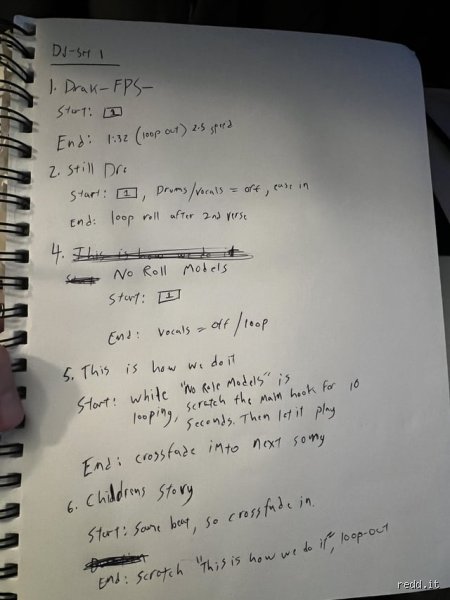 DJ-Set 1
1. Drak-FPS-
Start: 1
End: 1:32 (loop out) 2.5 speed
2. Still Dre
Start: 1, Drums/vocals = off, ease in
End: loop roll after 2nd verse
4. This is how we do it
No Roll Models
Start: 1
End: vocals = off/loop
5. This is how we do it
Start: while "No Role Models" is
looping, scratch the main hook for 10
seconds. Then let it play
End: crossfade into next song
6. Childrens Story
Start: same beat, so crossfade in.
End: scratch "This is how we do it", loop-out
redd.it